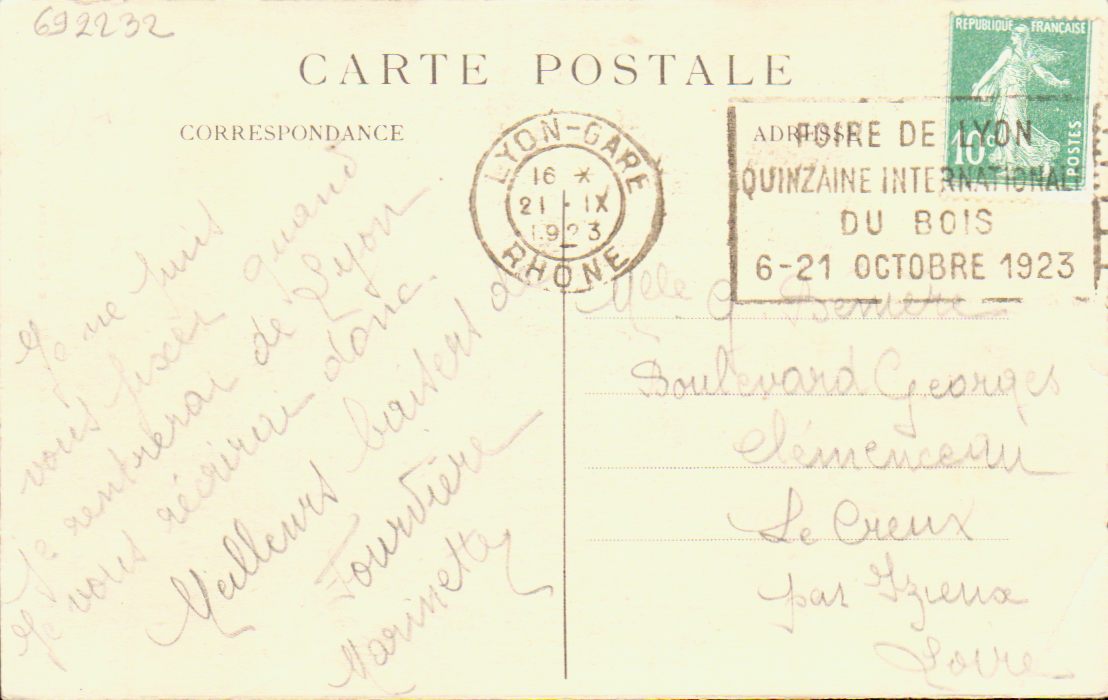 692232
CARTE POSTALE
CORRESPONDANCE
ADRESSE
REPUBLIQUE FRANÇAISE
10c
POSTES
LYON-GARE
16 *
21 · IX
1923
RHONE
FOIRE DE LYON
QUINZAINE INTERNATIONALE
DU BOIS
6-21 OCTOBRE 1923
Je ne puis
vous fixer quand
je rentrerai de Lyon
Je vous récrirai donc.
Meilleurs baisers de
Fourvière
Marinette
Melle G.
Boulevard Georges
Clémenceau
Le Creux
par Izieux
Loire